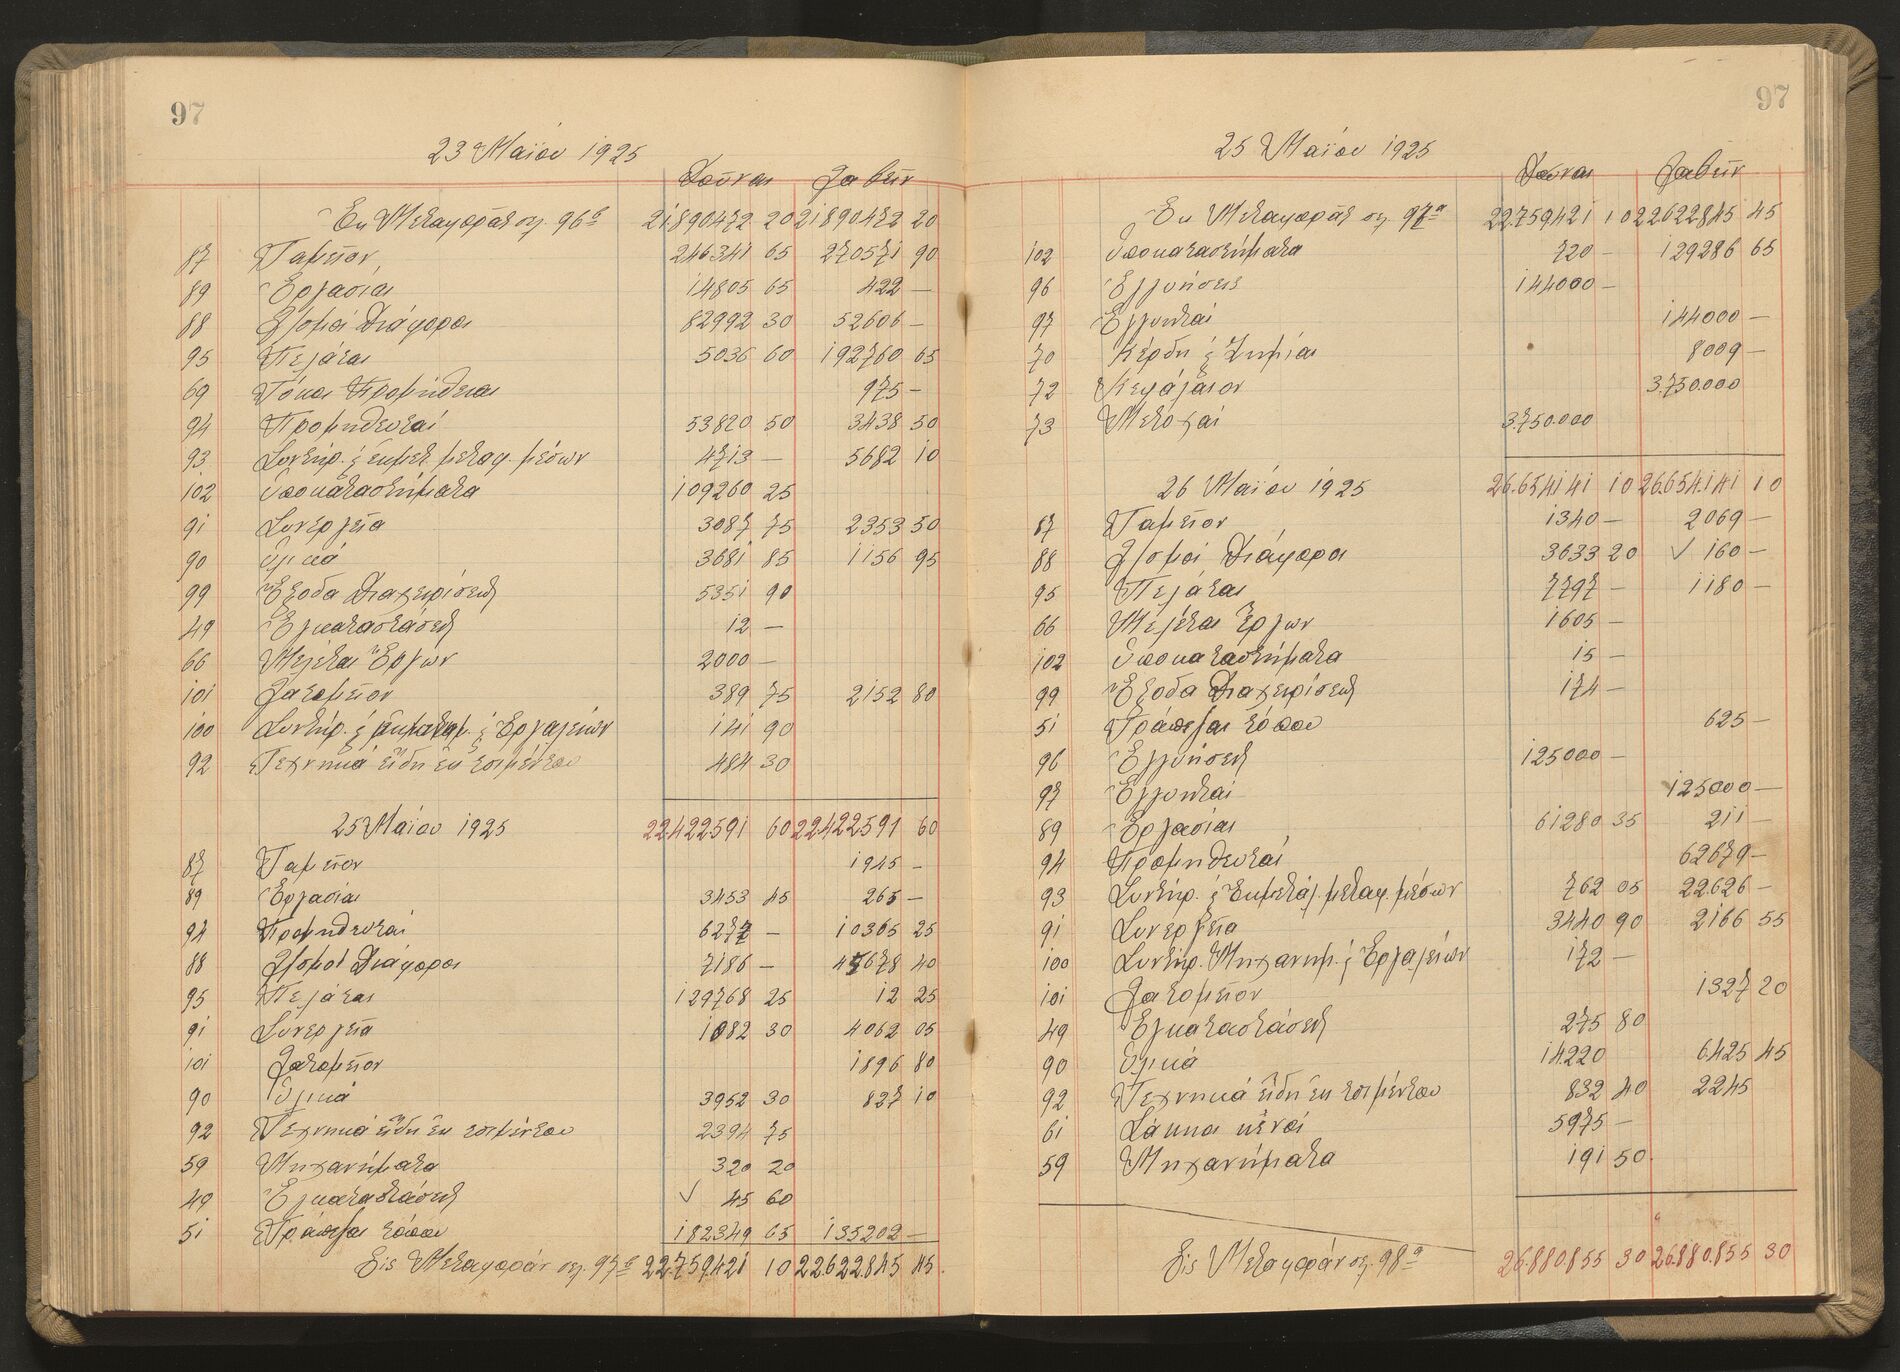 97
23 Μαΐου 1925
Δοῦναι Λαβεῖν
Ἐκ Μεταφορᾶς σελ. 96ας 21.890472 20 21890472 20
87 Ταμεῖον 246341 65 270571 90
89 Ἐργασίαι 14805 65 422 —
88 Λ/σμοί Διάφοροι 82992 30 52606 —
95 Πελάται 5036 60 192760 65
69 Τόκοι Προμήθειαι 975 —
94 Προμηθευταί 53820 50 3438 50
93 Συντήρ. & ἐκμετ. μεταφ. μέσων 4713 — 5682 10
102 Ὑποκαταστήματα 109260 25
91 Συνεργεῖα 3087 75 2353 50
90 Ὑλικά 3681 85 1156 95
99 Ἔξοδα Διαχειρίσεως 5351 90
49 Ἐγκαταστάσεις 12 —
66 Μελέται Ἔργων 2000 —
101 Λατομεῖον 389 75 2152 80
100 Συντήρ. & & Ἐργαλείων 141 90
92 Τεχνικά εἴδη ἐκ τσιμέντου 484 30
25 Μαΐου 1925 22422591 60 22422591 60
87 Ταμεῖον 1945 —
89 Ἐργασίαι 3453 45 265 —
94 Προμηθευταί 6277 — 10365 25
88 Λ/σμοί Διάφοροι 7186 — 45678 40
95 Πελάται 129768 25 12 25
91 Συνεργεῖα 1082 30 4062 05
101 Λατομεῖον 1896 80
90 Ὑλικά 3952 30 827 10
92 Τεχνικά εἴδη ἐκ τσιμέντου 2394 75
59 Μηχανήματα 320 20
49 Ἐγκαταστάσεις ✓ 45 60
51 Τράπεζαι τόπου 182349 65 135202 —
Εἰς Μεταφοράν σελ. 97ας 22.759.421 10 22.622.845 45
97
25 Μαΐου 1925
Δοῦναι Λαβεῖν
Ἐκ Μεταφορᾶς σελ. 97ας 22.759421 10 22622845 45
102 Ὑποκαταστήματα 720 — 129286 65
96 Ἐγγυήσεις 144000 —
97 Ἐγγυηταί 144000 —
70 Κέρδη & Ζημίαι 8009 —
72 Κεφάλαιον 3.750.000
73 Μετοχαί 3.750.000
26 Μαΐου 1925 26.654141 10 26.654.141 10
87 Ταμεῖον 1340 — 2069 —
88 Λ/σμοί Διάφοροι 3633 20 ✓ 160 —
95 Πελάται 7797 — 1180 —
66 Μελέται Ἔργων 1605 —
102 Ὑποκαταστήματα 15 —
99 Ἔξοδα Διαχειρίσεως 174 —
51 Τράπεζαι τόπου 625 —
96 Ἐγγυήσεις 125000 —
97 Ἐγγυηταί 125000 —
89 Ἐργασίαι 61280 35 211 —
94 Προμηθευταί 62679 —
93 Συντήρ. & Ἐκμετάλ. μεταφ. μέσων 762 05 22.626 —
91 Συνεργεῖα 3440 90 2166 55
100 Συντήρ. Μηχανημ. & Ἐργαλείων 172 —
101 Λατομεῖον 1327 20
49 Ἐγκαταστάσεις 275 80
90 Ὑλικά 14220 6425 45
92 Τεχνικά εἴδη ἐκ τσιμέντου 832 40 2245
61 Σάκκοι κενοί 5975 —
59 Μηχανήματα 191 50
Εἰς Μεταφοράν σελ. 98ας 26.880.855 30 26.880.855 30